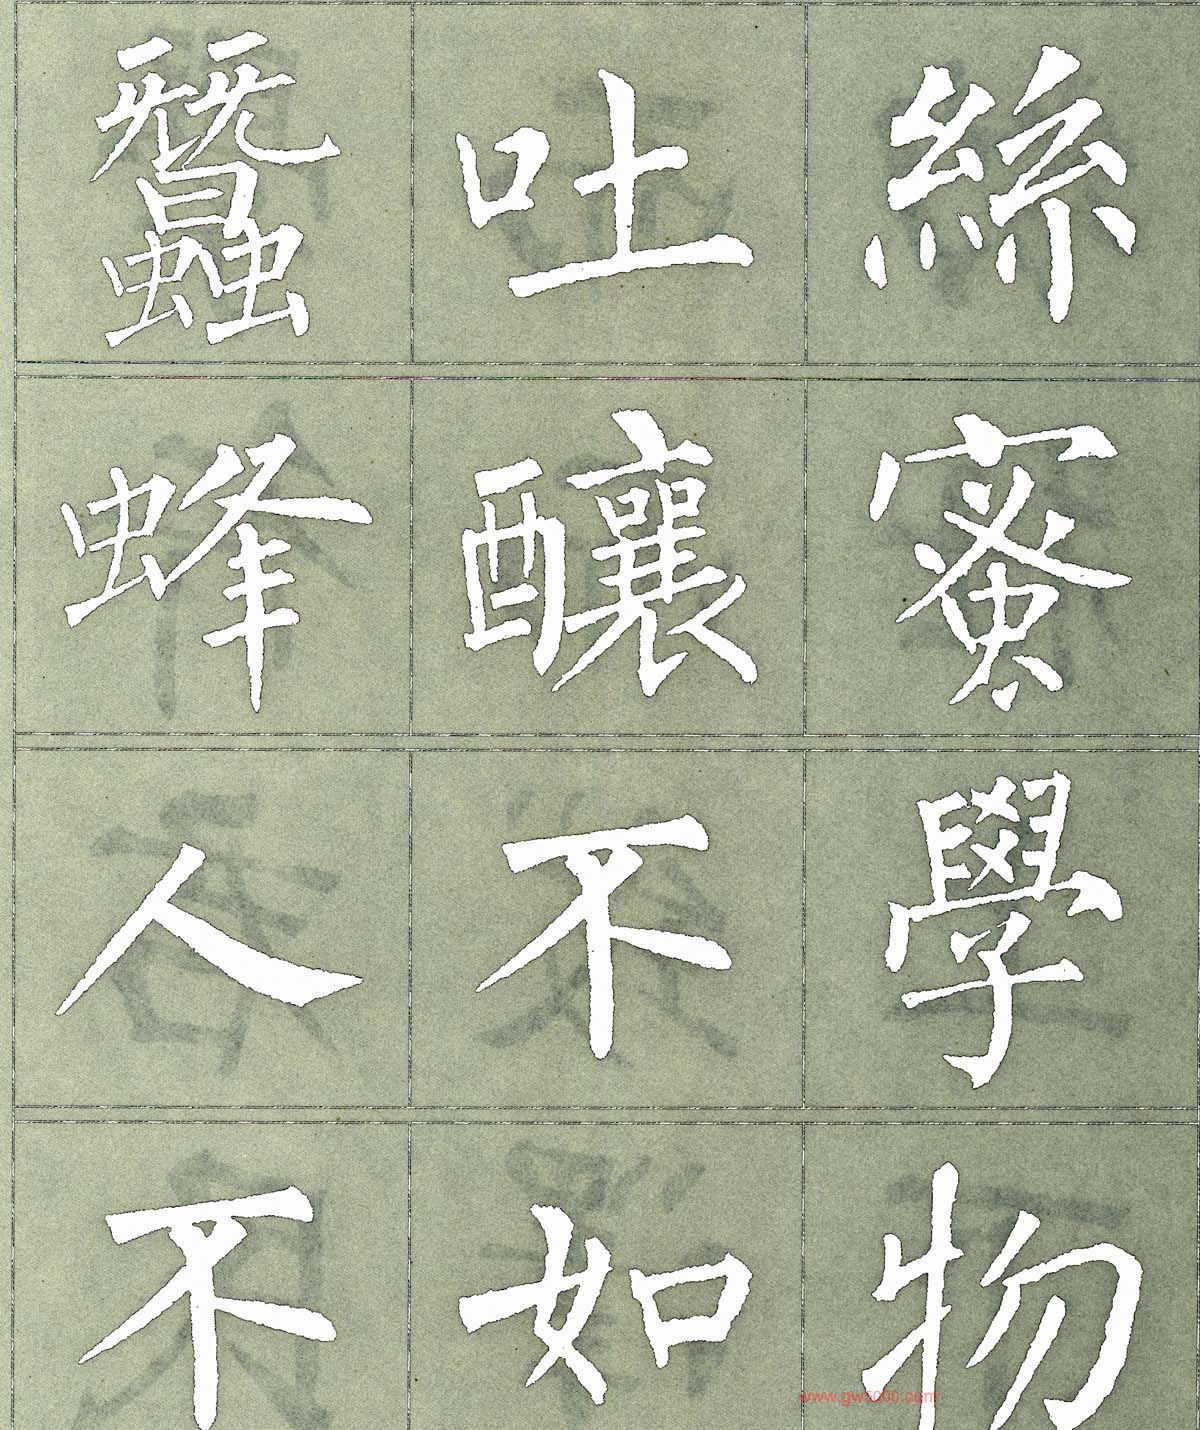 蠶吐絲
蜂釀蜜
人不學
不如物
www.gw5000.com